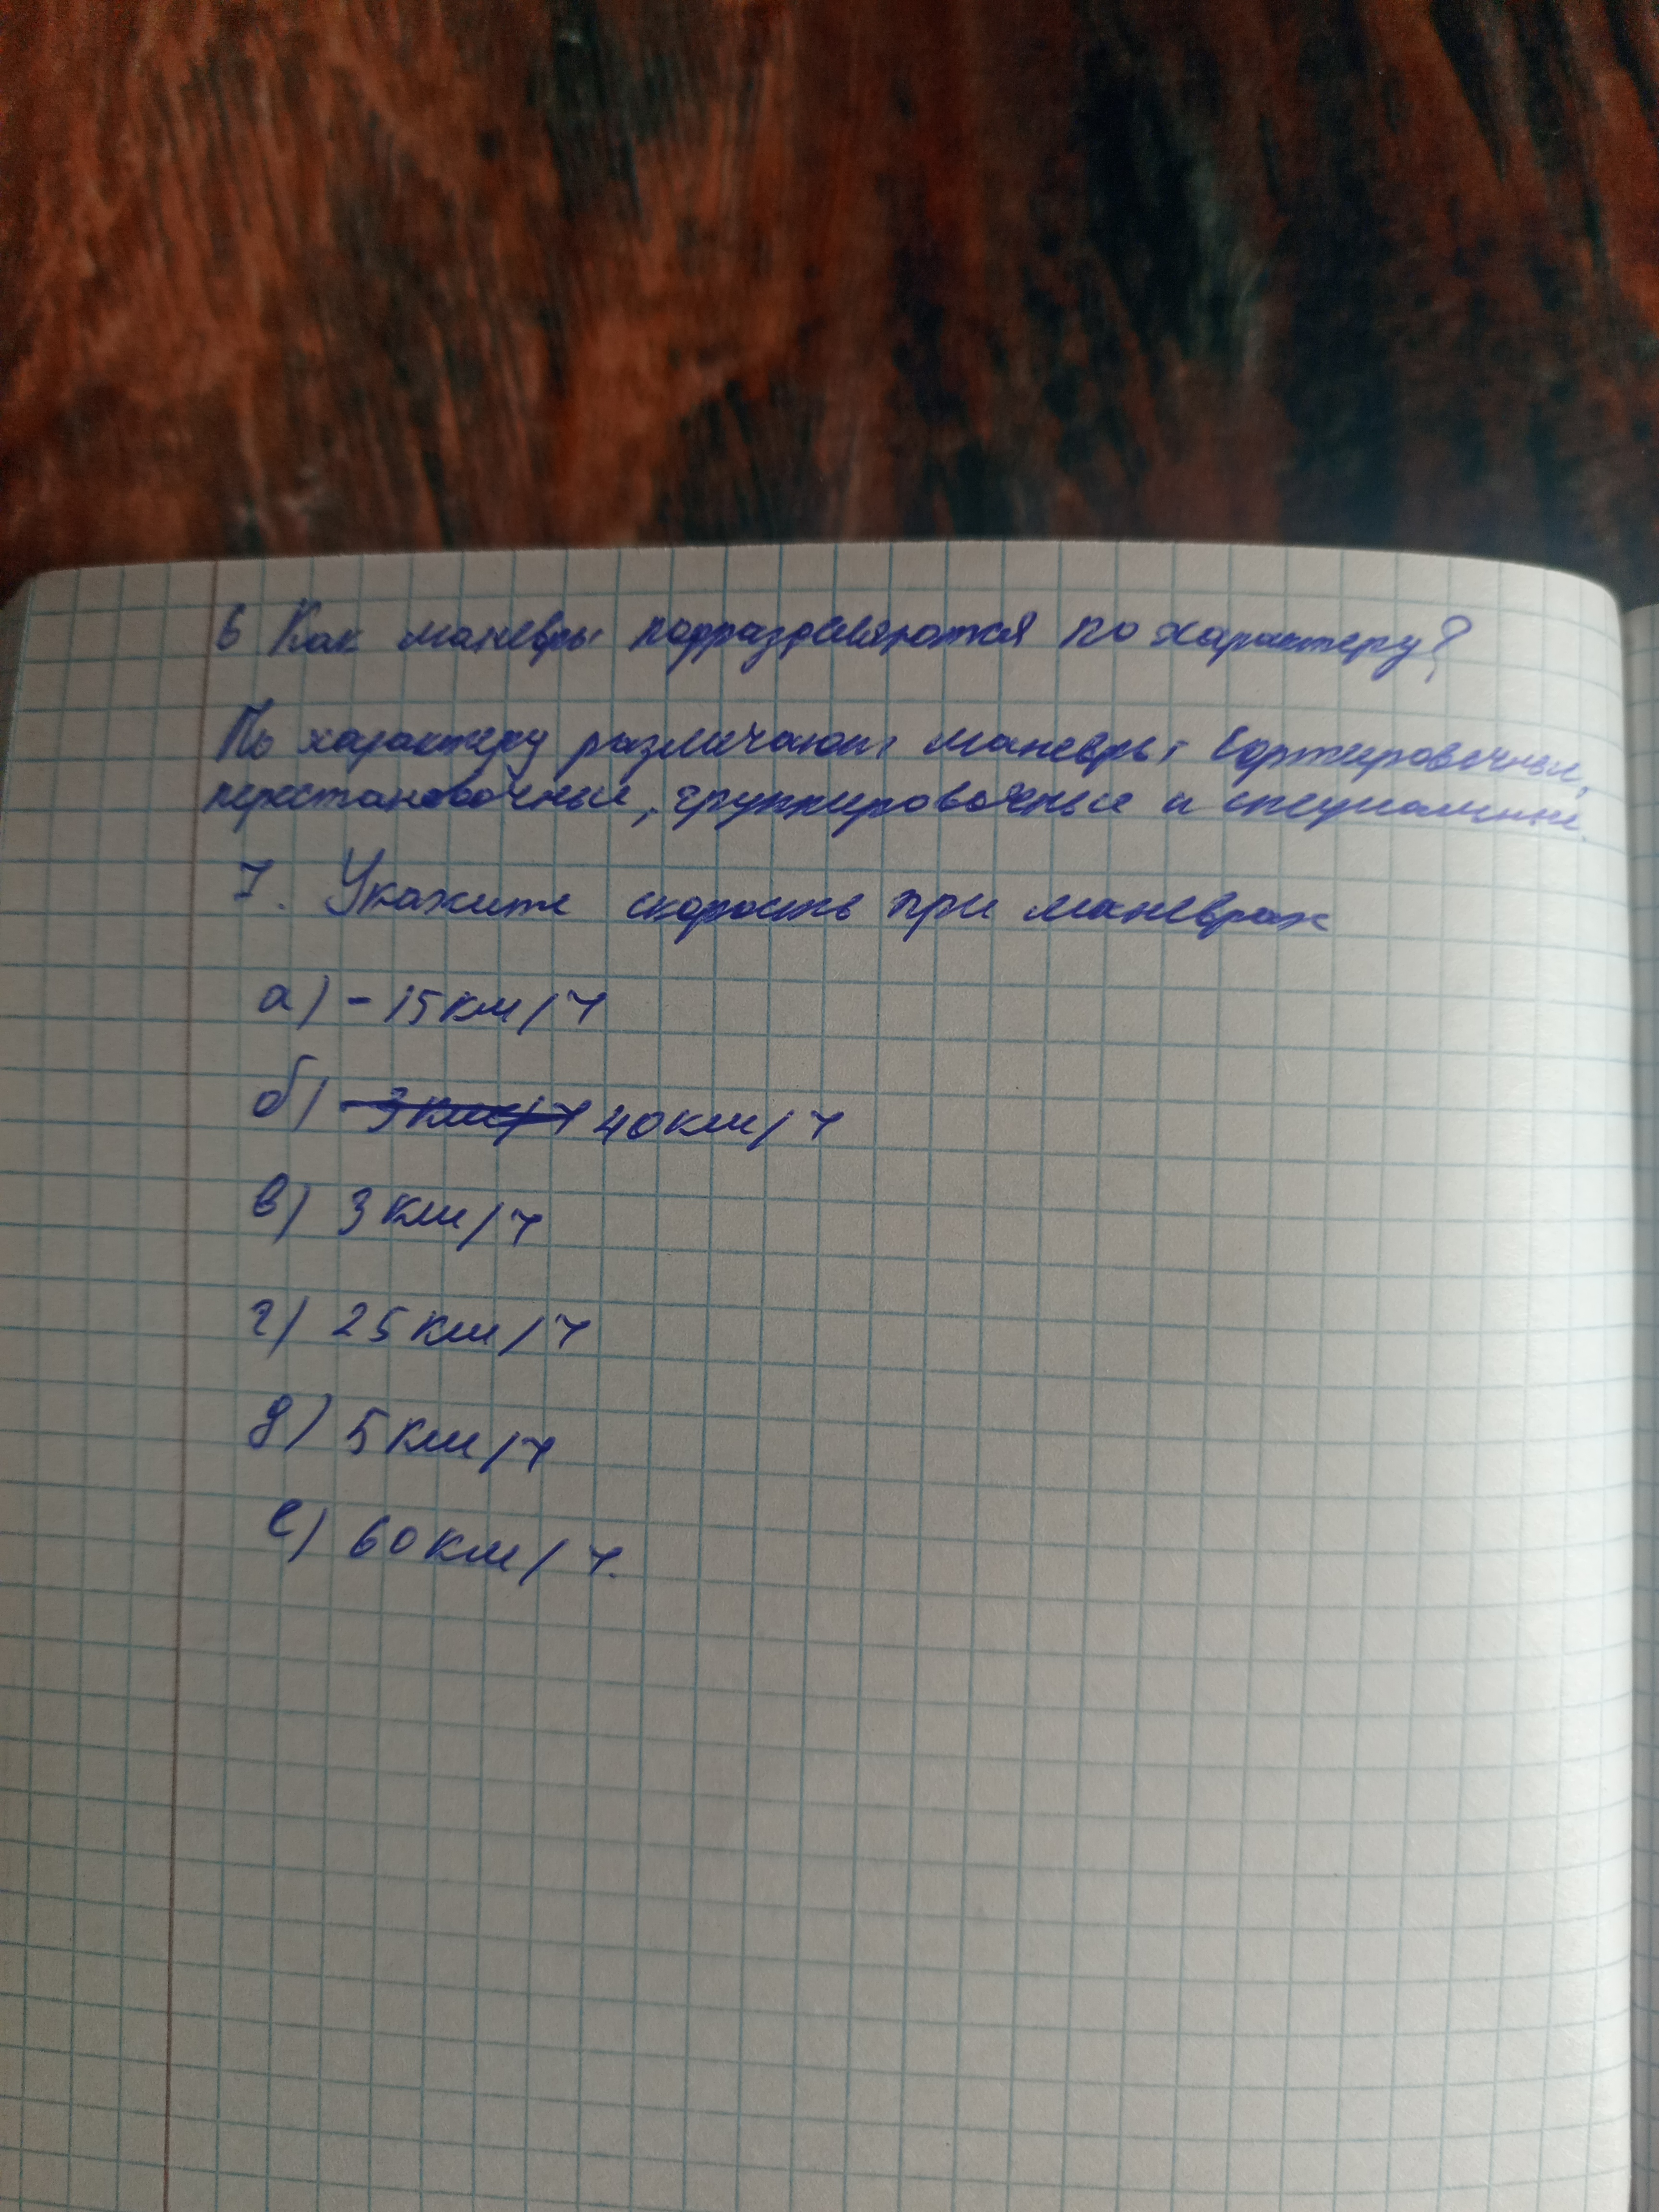 6 Как маневры подразделяются по характеру?
По характеру различают маневры сортировочные,
перестановочные, группировочные и специальные.
7. Укажите скорость при маневрах
а) - 15 км/ч
б) 3 км/ч 40 км/ч
в) 3 км/ч
г) 25 км/ч
д) 5 км/ч
е) 60 км/ч.